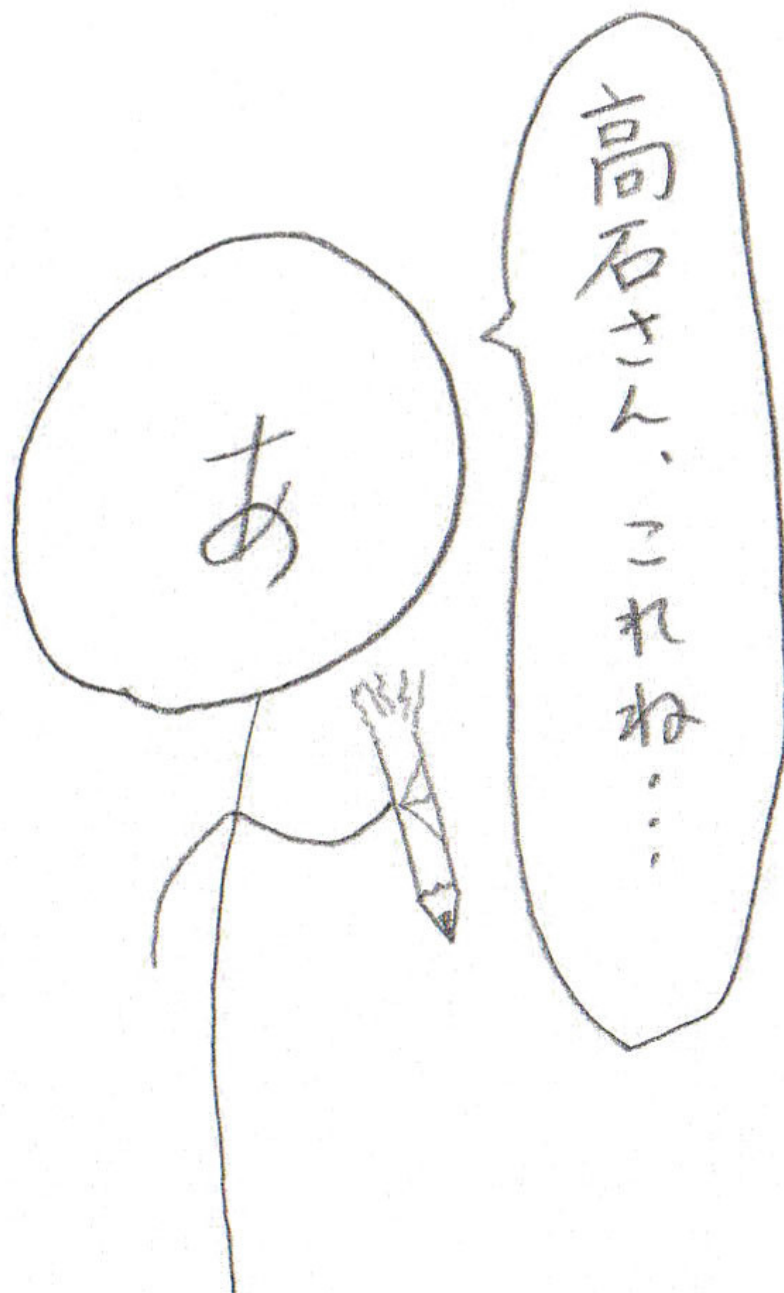 高石さん、これね・・・
あ